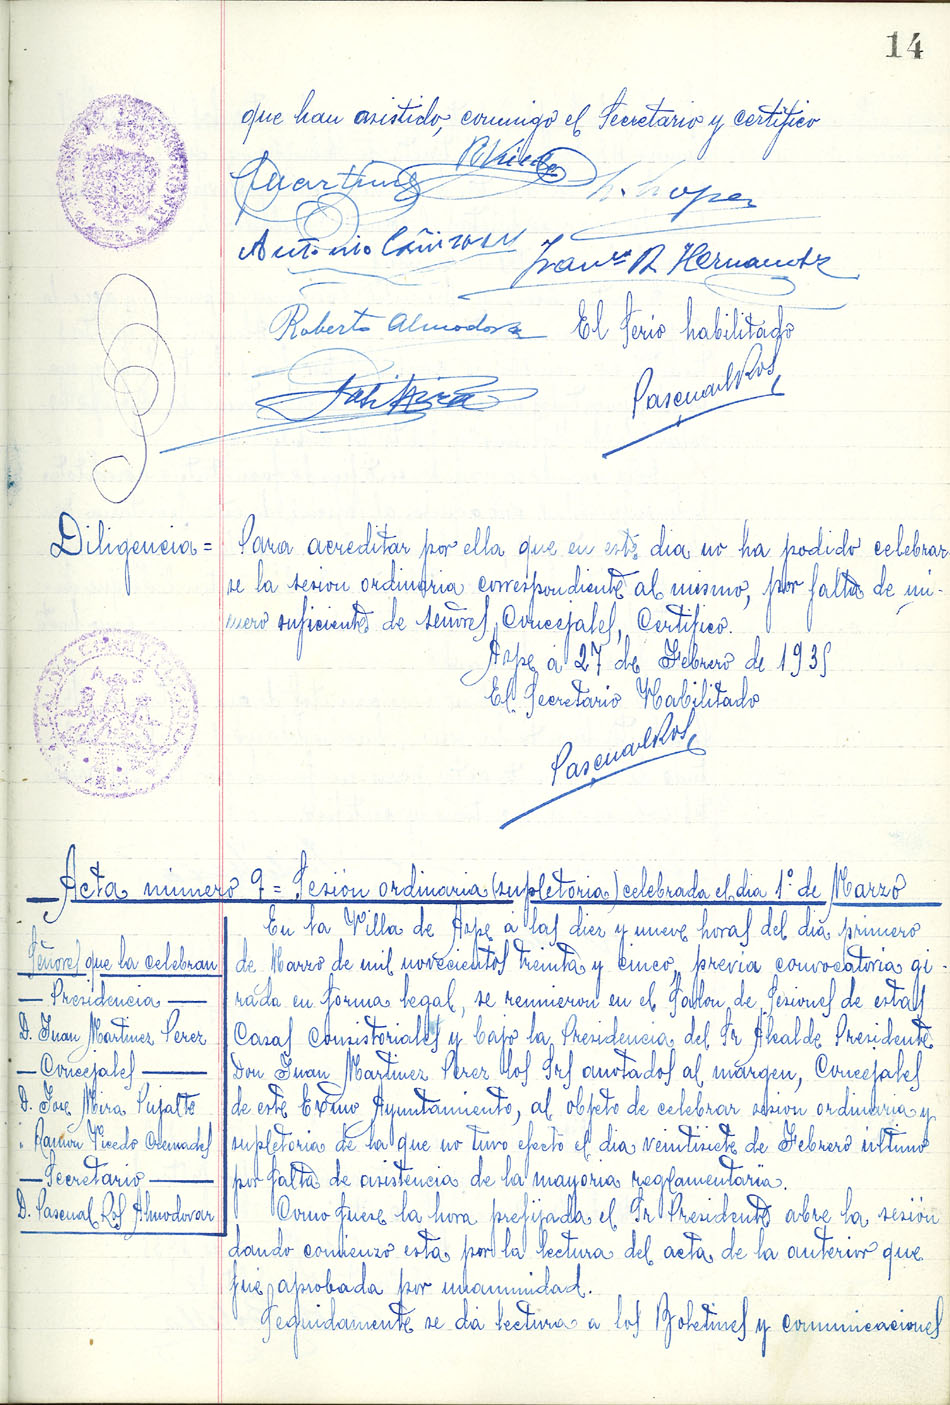 14
que han asistido, conmigo el Secretario y certifico
JMartinez
RVicedo
L. Lopez
Antonio Cañizares
Franco R Hernandez
Roberto Almodovar
El Serio habilitado
José Mira
Pascual Ros
Diligencia =
Para acreditar por ella que en este dia no ha podido celebrar-
se la sesion ordinaria correspondiente al mismo, por falta de nú-
mero suficiente de señores Concejales, Certifico.
Aspe a 27 de Febrero de 1935
El Secretario Habilitado
Pascual Ros
Acta número 9 = Sesión ordinaria (supletoria) celebrada el dia 1º de Marzo
Señores que la celebran
— Presidencia —
D. Juan Martinez Perez
— Concejales —
D. Jose Mira Pujalte
" Ramon Vicedo Cremades
— Secretario —
D. Pascual Ros Almodovar
En la Villa de Aspe a las diez y nueve horas del dia primero
de Marzo de mil novecientos treinta y cinco, previa convocatoria gi-
rada en forma legal, se reunieron en el Salon de Sesiones de estas
Casas Consistoriales y bajo la Presidencia del Sr Alcalde Presidente
Don Juan Martinez Perez los Srs anotados al márgen, Concejales
de este Excmo Ayuntamiento, al objeto de celebrar sesion ordinaria y
supletoria de la que no tuvo efecto el dia veintisiete de Febrero último
por falta de asistencia de la mayoria reglamentaria.
Como fuese la hora prefijada el Sr Presidente abre la sesión
dando comienzo esta por la lectura del acta de la anterior que
fué aprobada por unanimidad.
Seguidamente se da lectura a los Boletines y comunicaciones